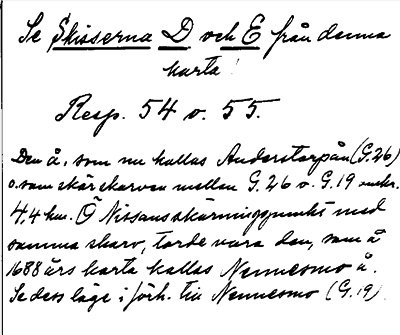 Se Skisserna D och E från denna
karta!
Resp. 54 o. 55.
Den å, som nu kallas Anderstorpån (G.26)
o. som skär skarven mellan G.26 o. G.19 unkr.
4,4 km. Ö Nissans skärningspunkt med
samma skarv, torde vara den, som å
1688 års karta kallas Nennesmo å.
Se dess läge i förh. till Nennesmo (G.19).